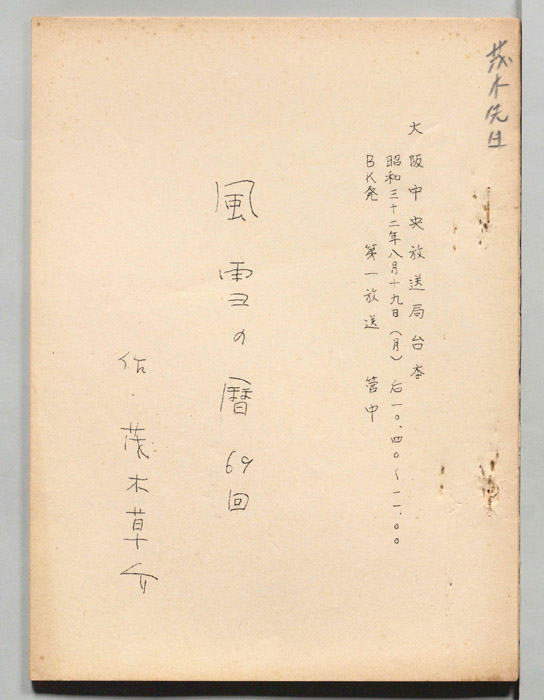 茂木先生
大阪中央放送局台本
昭和三十二年八月十九日(月) 后一〇.四〇〜一一.〇〇
BK発 第一放送 管中
風雪の暦 69回
作・茂木草介